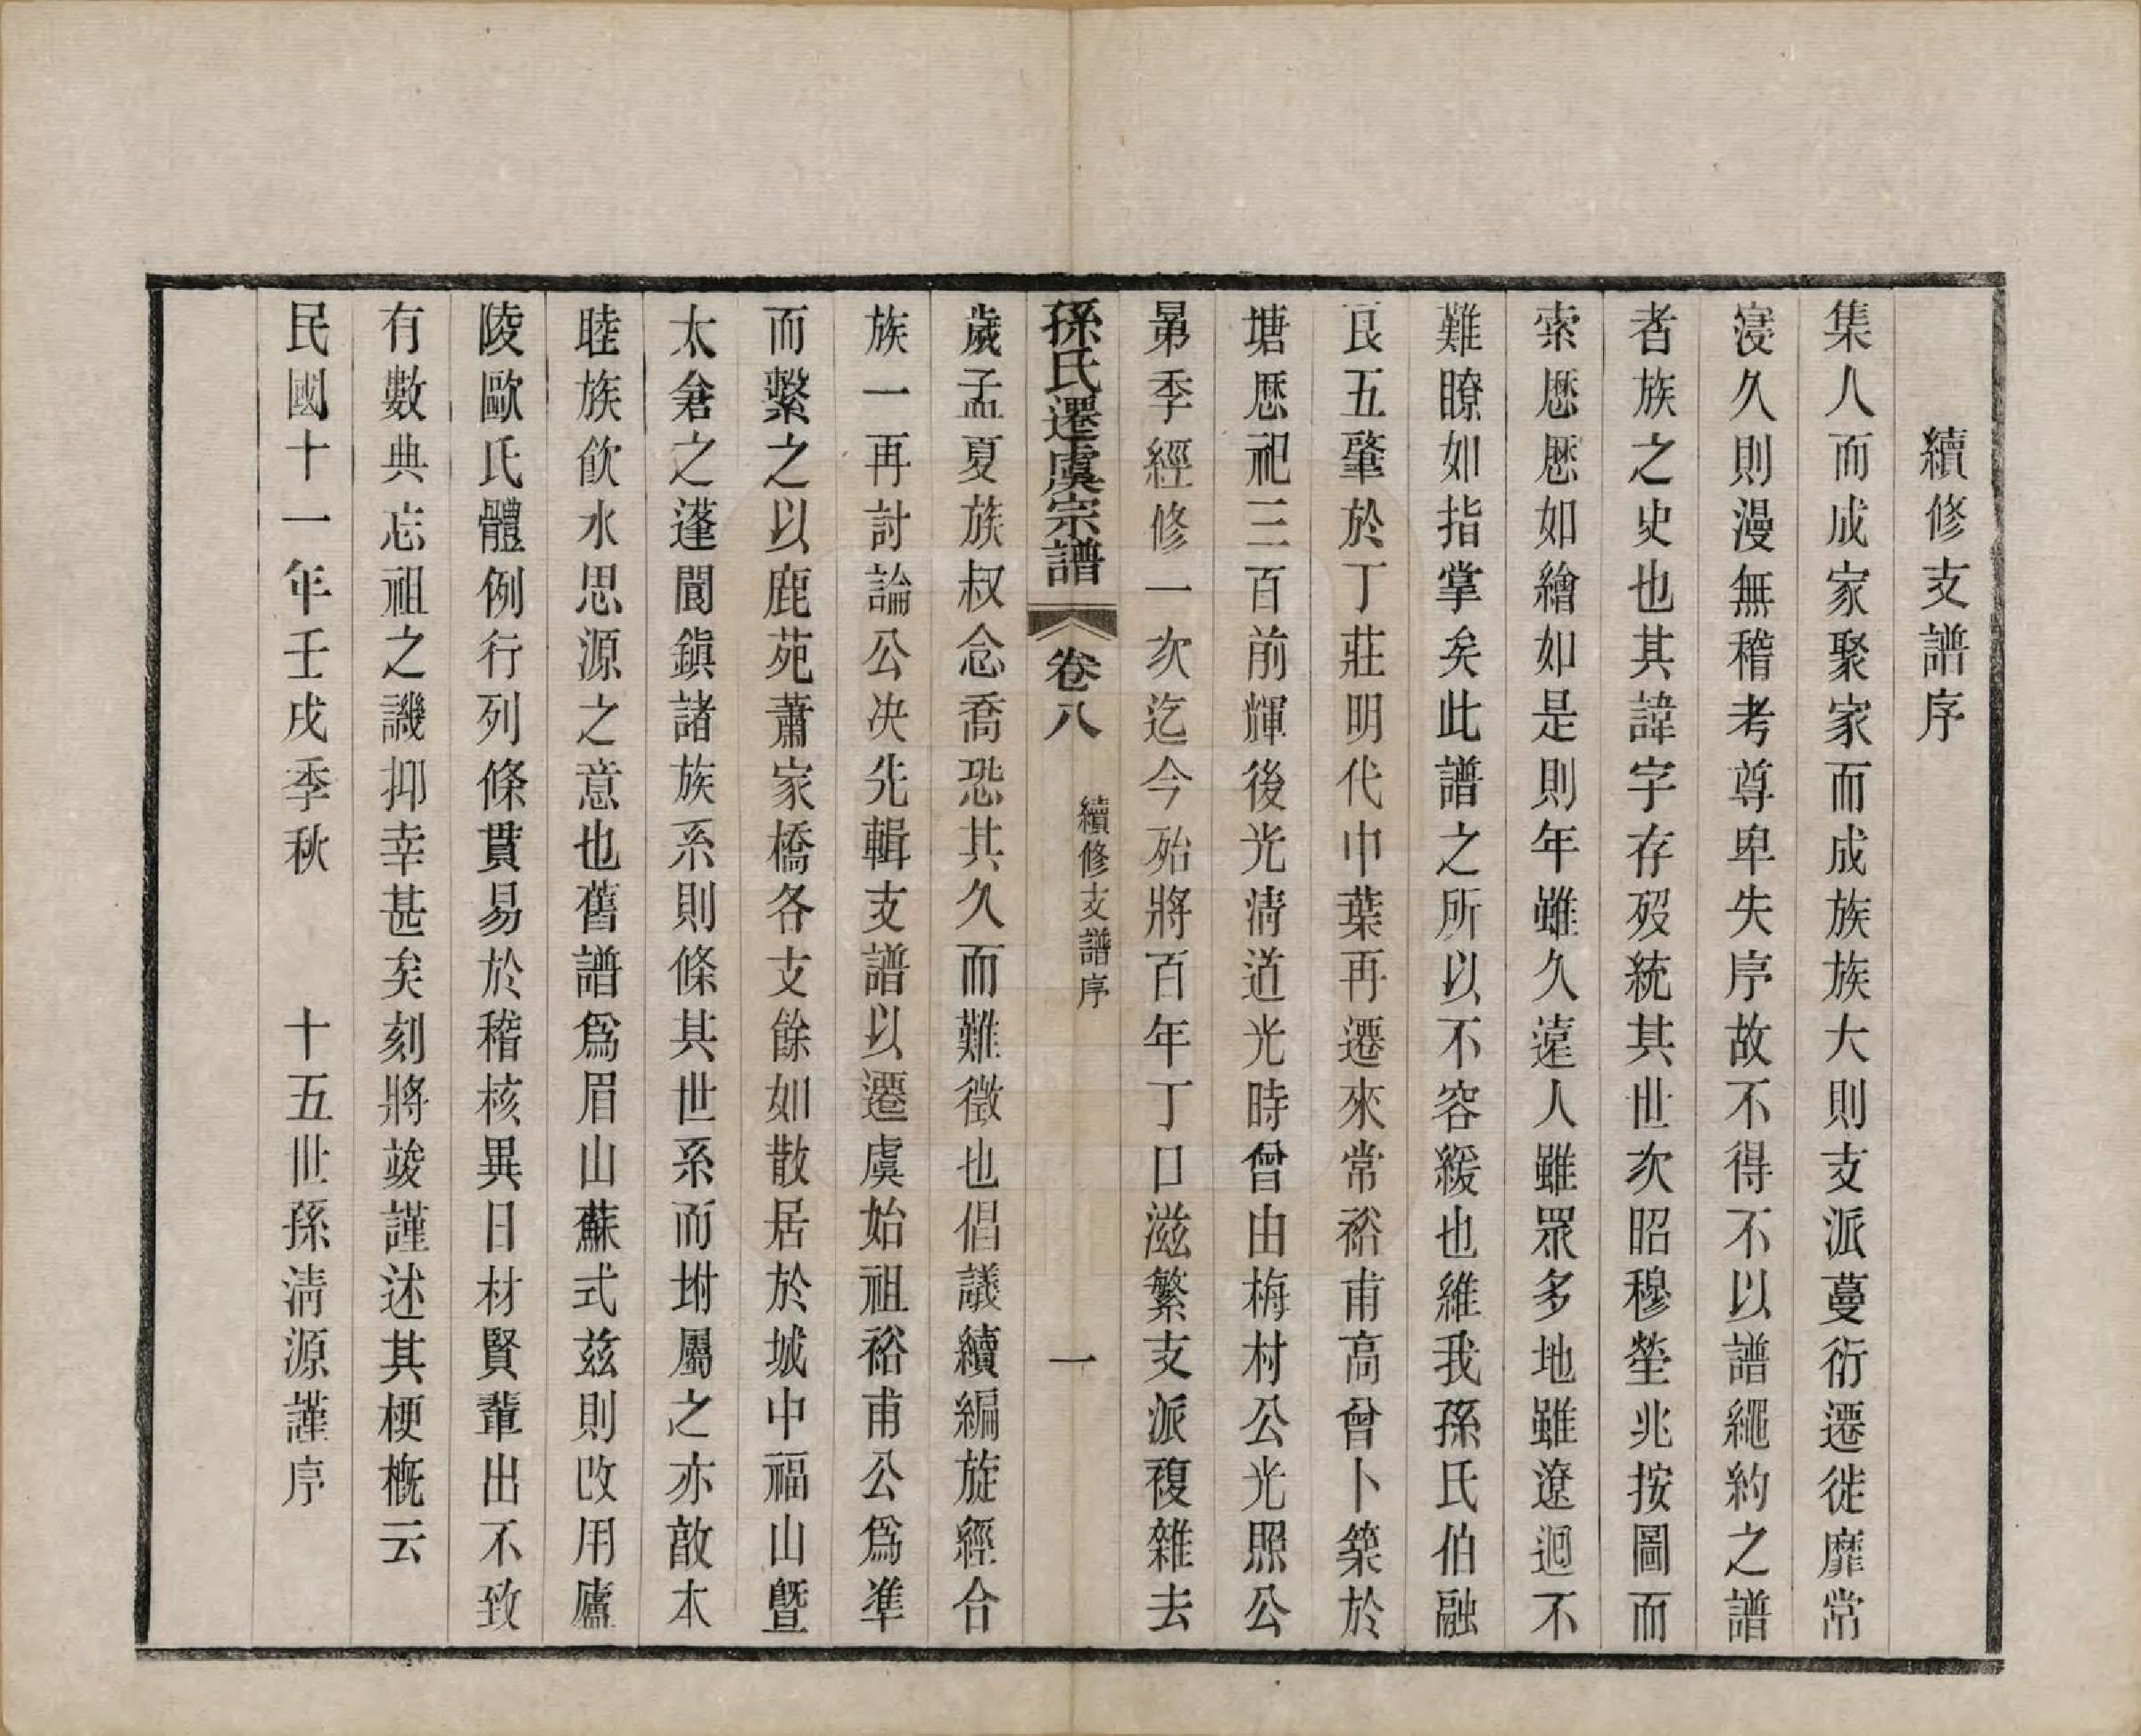 續修支譜序
集人而成家聚家而成族族大則支派蔓衍遷徙靡常
寖久則漫無稽考尊卑失序故不得不以譜繩約之譜
者族之史也其諱字存歿統其世次昭穆塋兆按圖而
索歷歷如繪如是則年雖久遠人雖眾多地雖遼迥不
難瞭如指掌矣此譜之所以不容緩也維我孫氏伯融
良五肇於丁莊明代中葉再遷來常裕甫高曾卜築於
塘歷祀三百前輝後光淸道光時曾由梅村公光照公
晜季經修一次迄今殆將百年丁口滋繁支派複雜去
歲孟夏族叔念喬恐其久而難徵也倡議續編旋經合
族一再討論公决先輯支譜以遷虞始祖裕甫公爲準
而繫之以鹿苑蕭家橋各支餘如散居於城中福山曁
太倉之蓬閬鎭諸族系則條其世系而坿屬之亦敵本
睦族飮水思源之意也舊譜爲眉山蘇式兹則改用廬
陵歐氏體例行列條貫易於稽核異日材賢輩出不致
有數典忘祖之譏抑幸甚矣刻將竣謹述其梗概云
民國十一年壬戌季秋 十五世孫淸源謹序
孫氏遷虞宗譜 卷八 續修支譜序 一